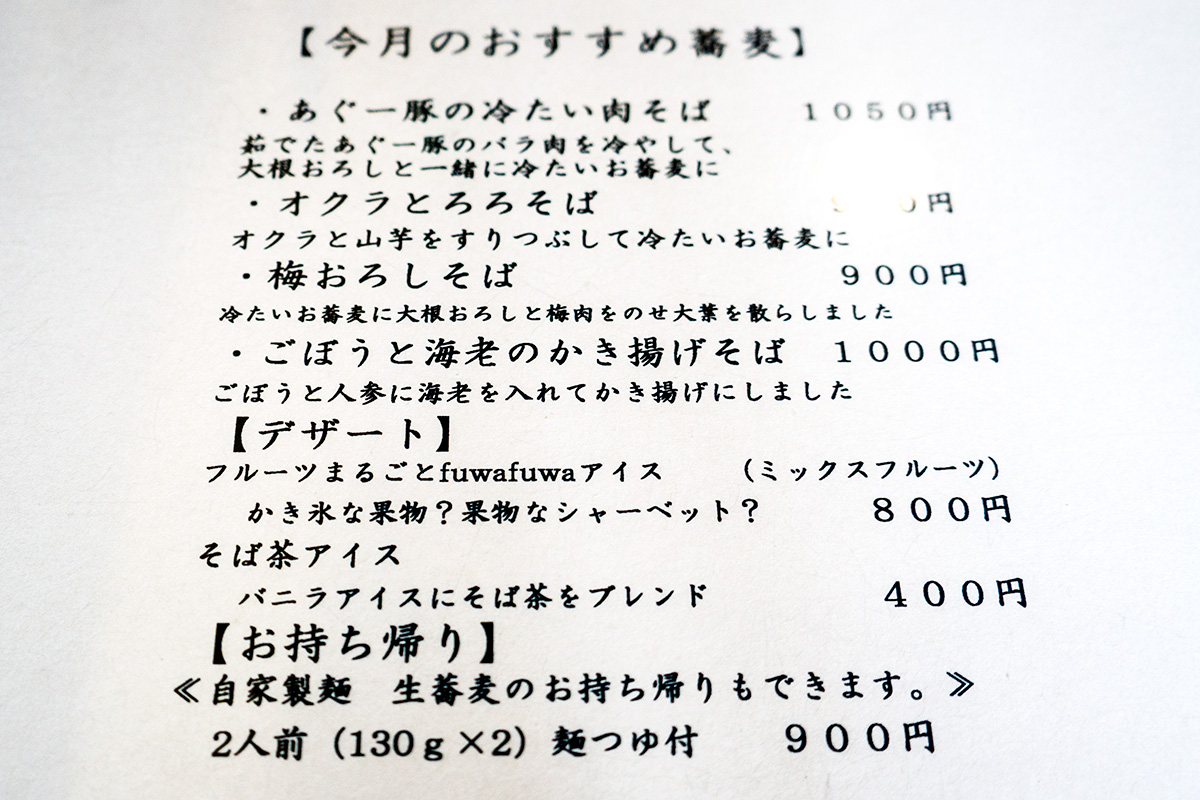 【今月のおすすめ蕎麦】
・あぐー豚の冷たい肉そば 1050円
茹でたあぐー豚のバラ肉を冷やして、
大根おろしと一緒に冷たいお蕎麦に
・オクラとろろそば 円
オクラと山芋をすりつぶして冷たいお蕎麦に
・梅おろしそば 900円
冷たいお蕎麦に大根おろしと梅肉をのせ大葉を散らしました
・ごぼうと海老のかき揚げそば 1000円
ごぼうと人参に海老を入れてかき揚げにしました
【デザート】
フルーツまるごとfuwafuwaアイス （ミックスフルーツ）
かき氷な果物？果物なシャーベット？ 800円
そば茶アイス
バニラアイスにそば茶をブレンド 400円
【お持ち帰り】
≪自家製麺 生蕎麦のお持ち帰りもできます。≫
2人前（130ｇ×2）麺つゆ付 900円